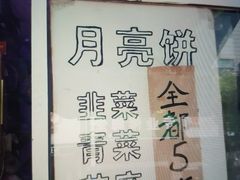 月亮饼
韭菜
青菜
全都5